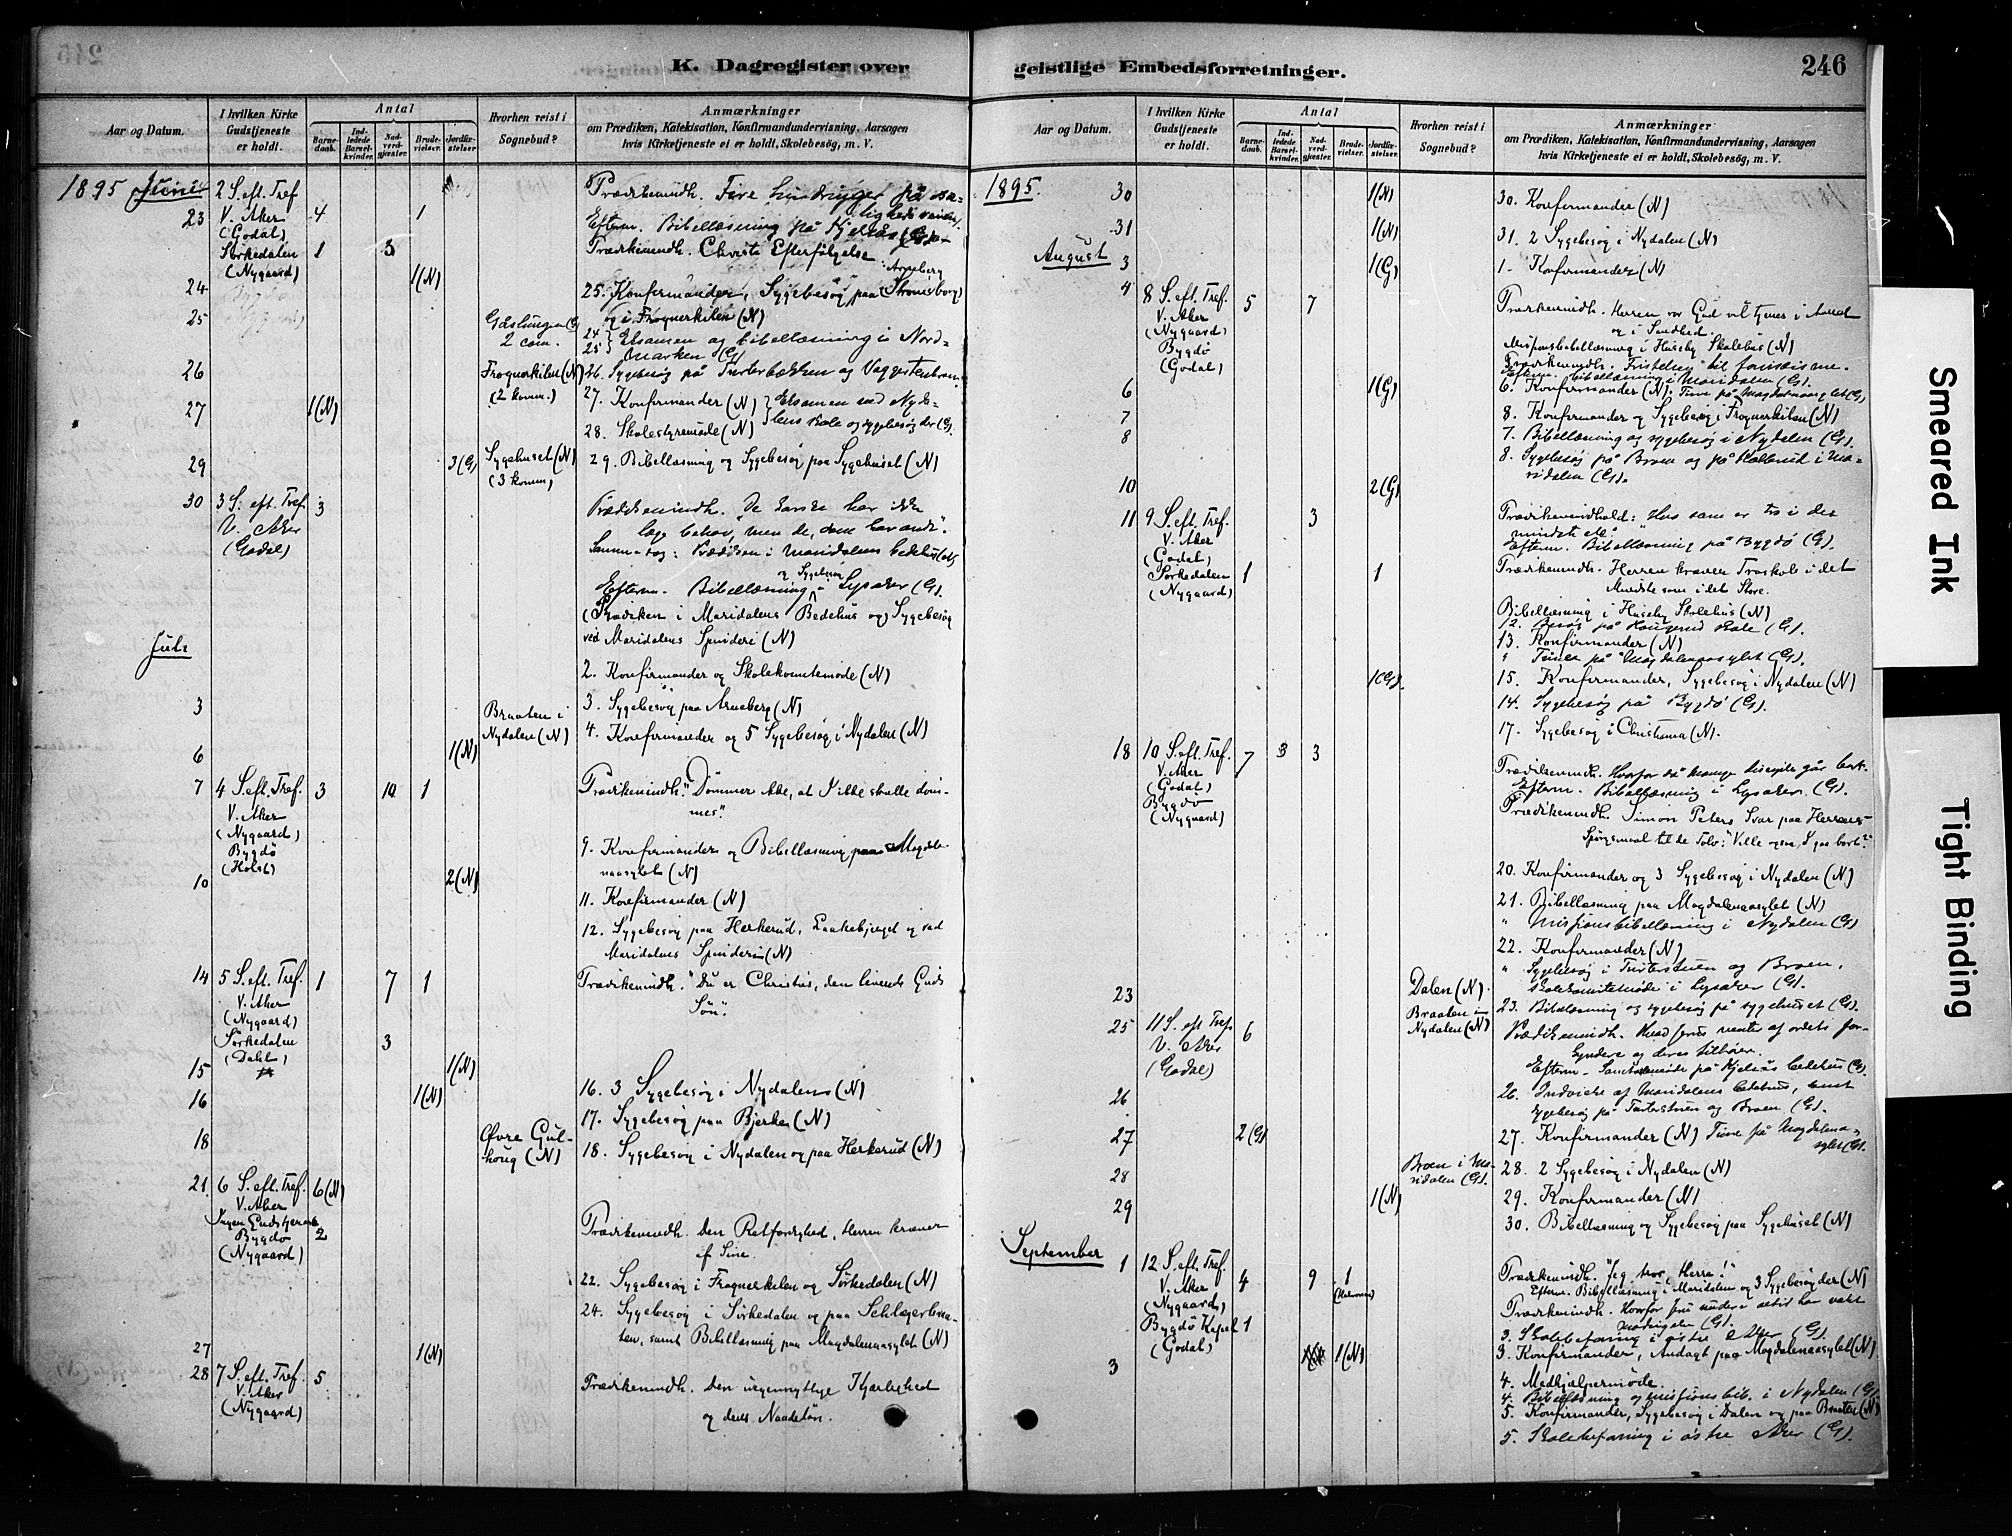 K. Dagregister over
Aar og Datum.
I hvilken Kirke
Gudstjeneste
er holdt.
Antal
Barne-
daab.
Ind-
ledede
Barsel-
kvinder.
Nad-
verd-
gjæster.
Brude-
vielser.
Jordfæ-
stelser
Hvorhen reist i
Sognebud?
Anmærkninger
om Prædiken, Katekisation, Konfirmandundervisning, Aarsagen
hvis Kirketjeneste ei er holdt, Skolebesøg, m. V.
1895 Juni
23 2 S. eft. Tref. V. Aker (Godal) 4 1
Prædikenindh. Fire hindringer på
Efterm. Bibellæsning på Kjelsås
Sørkedalen (Nygaard) 1 3
Prædikenindh. Christi Efterfølgelse
24 1(N)
25. Konfirmander, Sygebesøg paa Arneberg
og i Frognerkilen (N)
25 2 com.
24 25 Eksamen og bibellæsning i Nord-
marken (G)
26 Frognerkilen (N) (2 komm.)
26. Sygebesøg på
27 1(N)
27. Konfirmander (N) Eksamen ved Nyda-
lens skole og sygebesøg der (G).
28. Skolestyremøde (N)
29 3(G) Sygehuset (N) (3 komm)
29. Bibellæsning og Sygebesøg paa Sygehuset (N)
30 3 S. eft. Tref. V. Aker (Godal) 3
Prædikenindh. "De karske har ikke
læge behov, men de, som har ondt".
Samme dag: Prædiken i Maridalens bedehus (N)
Efterm. Bibellæsning og Sygebesøg Lysaker (G).
(Prædiken i Maridalens Bedehus og) Sygebesøg
ved Maridalens Spinderi (N)
Juli
2. Konfirmander og Skolekomitemøde (N)
3 Braaten i Nydalen (N)
3. Sygebesøg paa Arneberg (N)
4. Konfirmander og 5 Sygebesøg i Nydalen (N)
6 1(N)
7 4 S. eft. Tref. V. Aker (Nygaard) Bygdø (Holst) 3 10 1
Prædikenindh. "Dømmer ikke, at I ikke skulle døm-
mes".
9. Konfirmander og Bibellæsning paa Magdale-
naasylet (N)
10 2(N)
11. Konfirmander (N)
12. Sygebesøg paa Herkerud, Laakebjerget og ved
Maridalens Spinderi (N)
14 5 S. eft. Tref. V. Aker (Nygaard) 1 7 1
Prædikenindh. "Du er Christus, den levende Guds
Søn".
Sørkedalen (Dahl) 3
15 1(N)
16 1(N)
16. 3 Sygebesøg i Nydalen (N)
17. Sygebesøg paa Bjerke (N)
18 Øvre Gul-
houg (N)
18. Sygebesøg i Nydalen og paa Herkerud (N)
21 6 S. eft. Tref. V. Aker 6(N)
Ingen Gudstjeneste
Bygdø (Nygaard) 2
Prædikenindh. Den Retfærdighed, Herren kræver
af Sine.
22. Sygebesøg i Frognerkilen og Sørkedalen (N)
24. Sygebesøg i Sørkedalen og paa Schlægerbraa-
ten, samt Bibellæsning paa Magdalenaasylet (N)
27 1(N)
28 7 S. eft. Tref. V. Aker (Nygaard) 5
Prædikenindh. Den uegennyttige Kjærlighed
og dens Naadeløn.
geistlige Embedsforretninger.
246
Aar og Datum.
I hvilken Kirke
Gudstjeneste
er holdt.
Antal
Barne-
daab.
Ind-
ledede
Barsel-
kvinder.
Nad-
verd-
gjæster.
Brude-
vielser.
Jordfæ-
stelser
Hvorhen reist i
Sognebud?
Anmærkninger
om Prædiken, Katekisation, Konfirmandundervisning, Aarsagen
hvis Kirketjeneste ei er holdt, Skolebesøg, m. V.
1895.
30 1(N)
30. Konfirmander (N)
31 1(N)
31. 2 Sygebesøg i Nydalen (N)
August
3 1(G)
1. Konfirmander (N)
4 8 S. eft. Tref. V. Aker (Nygaard) 5 7
Prædikenindh. Herren vor Gud vil tjenes i Aand
og i Sandhed.
Missionsbibellæsning i Huseby Skolehus (N)
Bygdø (Godal)
Prædikenindh. Fristelser til
Efterm. bibellæsning i Maridalen (G).
6 1(G)
6. Konfirmander (N). Time på Magdalenaasylet (G)
7
8. Konfirmander og Sygebesøg i Frognerkilen (N)
8
7. Bibellæsning og sygebesøg i Nydalen (G).
8. Sygebesøg på Broen og på i Ma-
ridalen (G).
10 2(G)
11 9 S. eft. Tref. V. Aker (Godal) 3
Prædikenindhold: Hvo som er tro i det
mindste etc.
Efterm. Bibellæsning på Bygdø (G).
Sørkedalen (Nygaard) 1 1
Prædikenindh. Herren kræver Troskab i det
Mindste som i det Store.
Bibellæsning i Huseby Skolehus (N)
12. Besøg på Haugerud skole (G).
13. Konfirmander (N)
" Timer på Magdalenaasylet (G).
1(G).
15. Konfirmander, Sygebesøg i Nydalen (N)
14. Sygebesøg på Bygdø (G).
17. Sygebesøg i Christiania (N).
18 10 S. eft. Tref. V. Aker (Godal) 7 3 3
Prædikenindh. Hvorfor så mange disciple går bort.
Efterm. Bibellæsning i Lysaker (G).
Bygdø (Nygaard)
Prædikenindh. Simon Peters Svar paa Herrens
Spørgsmaal til de Tolv: "Ville ogsaa I gaa bort?"
20. Konfirmander og 3 Sygebesøg i Nydalen (N)
21. Bibellæsning paa Magdalenaasylet (N)
" Missionsbibellæsning i Nydalen (G)
22. Konfirmander (N)
" Sygebesøg i Turterstuen og Broen,
skolekomitemøde i Lysaker (G).
23 Dalen (N).
23. Bibellæsning og sygebesøg på sygehuset (G).
25 11 S. eft Tref. V. Aker (Godal) 6 Braaten i
Nydalen (N)
Prædikenindh. Hvad Jesus venter af ordets for-
kyndere og deres tilhører.
Efterm. Samtalemøde på Kjelsås bedehus (G).
26
26. Indvielse af Maridalens bedehus, samt
sygebesøg på Turterstuen og Broen (G).
27 2(G)
27. Konfirmander (N) Time på Magdalena-
asylet (G).
28 Broen i Ma-
ridalen (G).
28. 2 Sygebesøg i Nydalen (N)
29 1(N)
29. Konfirmander (N)
30. Bibellæsning og Sygebesøg paa Sygehuset (N)
September
1 12 S. eft. Tref. V. Aker (Nygaard) 4 9 1
Prædikenindh. "Jeg tror, Herre!"
Efterm. Bibellæsning i Maridalen og 3 Sygebesøg der (N)
Bygdø Kapel (Godal) 1
Prædikenindh. Hvorfor Jesu undere altid har vakt
modsigelse (G).
3. Skolebefaring i østre Aker (G).
3 1(N)
3. Konfirmander, Andagt paa Magdalenaasylet (N)
4. Medhjælpermøde.
4. Bibellæsning og missionsbib. i Nydalen (G)
5. Konfirmander, Sygebesøg i Dalen og paa Braaten (N)
5. Skolebefaring i østre Aker (G).
Smeared Ink
Tight Binding